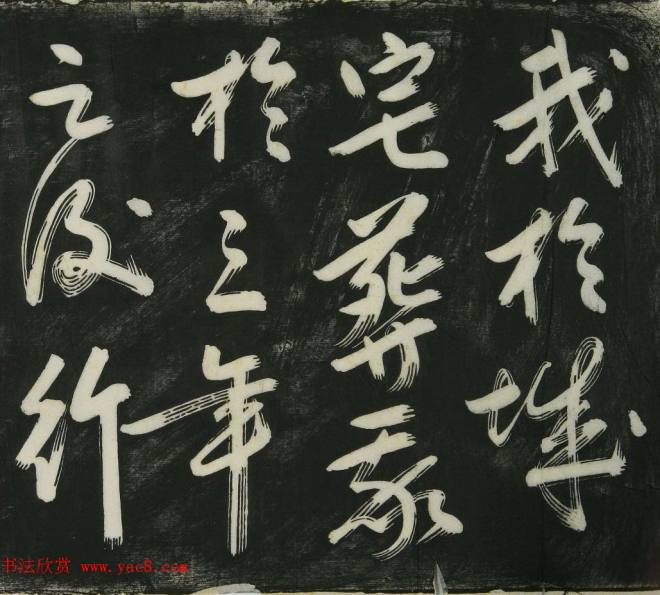 我於城
宅葬
於三年
之後行
书法欣赏 www.yac8.com